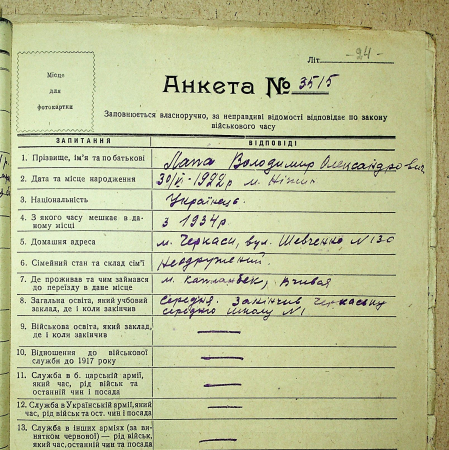 Літ. -24-
Місце
для
фотокартки
Анкета № 3515
Заповнюється власноручно, за неправдиві відомості відповідає по закону
військового часу
ЗАПИТАННЯ ВІДПОВІДІ
1. Прізвище, ім'я та по батькові Лапа Володимир Олександрович
2. Дата та місце народження 30/VI-1922р м. Ніжин
3. Національність Українець.
4. З якого часу мешкає в да-
ному місці з 1934р.
5. Домашня адреса м. Черкаси, вул. Шевченко, №130
6. Сімейний стан та склад сім'ї Неодружений.
7. Де проживав та чим займався
до переїзду в даве місце м. Капланбек,
8. Загальна освіта, який учбовий
заклад, де і коли закінчив Середня. Закінчив Черкаську
середню школу №1
9. Військова освіта, який заклад,
де і коли закінчив
10. Відношення до військової
служби до 1917 року
11. Служба в б. царській армії,
який час, рід військ та
останній чин і посада
12. Служба в Українській армії, який
час, рід військ та ост. чин і посада
13. Служба в інших арміях (за ви-
нятком червоної) — рід військ,
який час, останній чин та посада